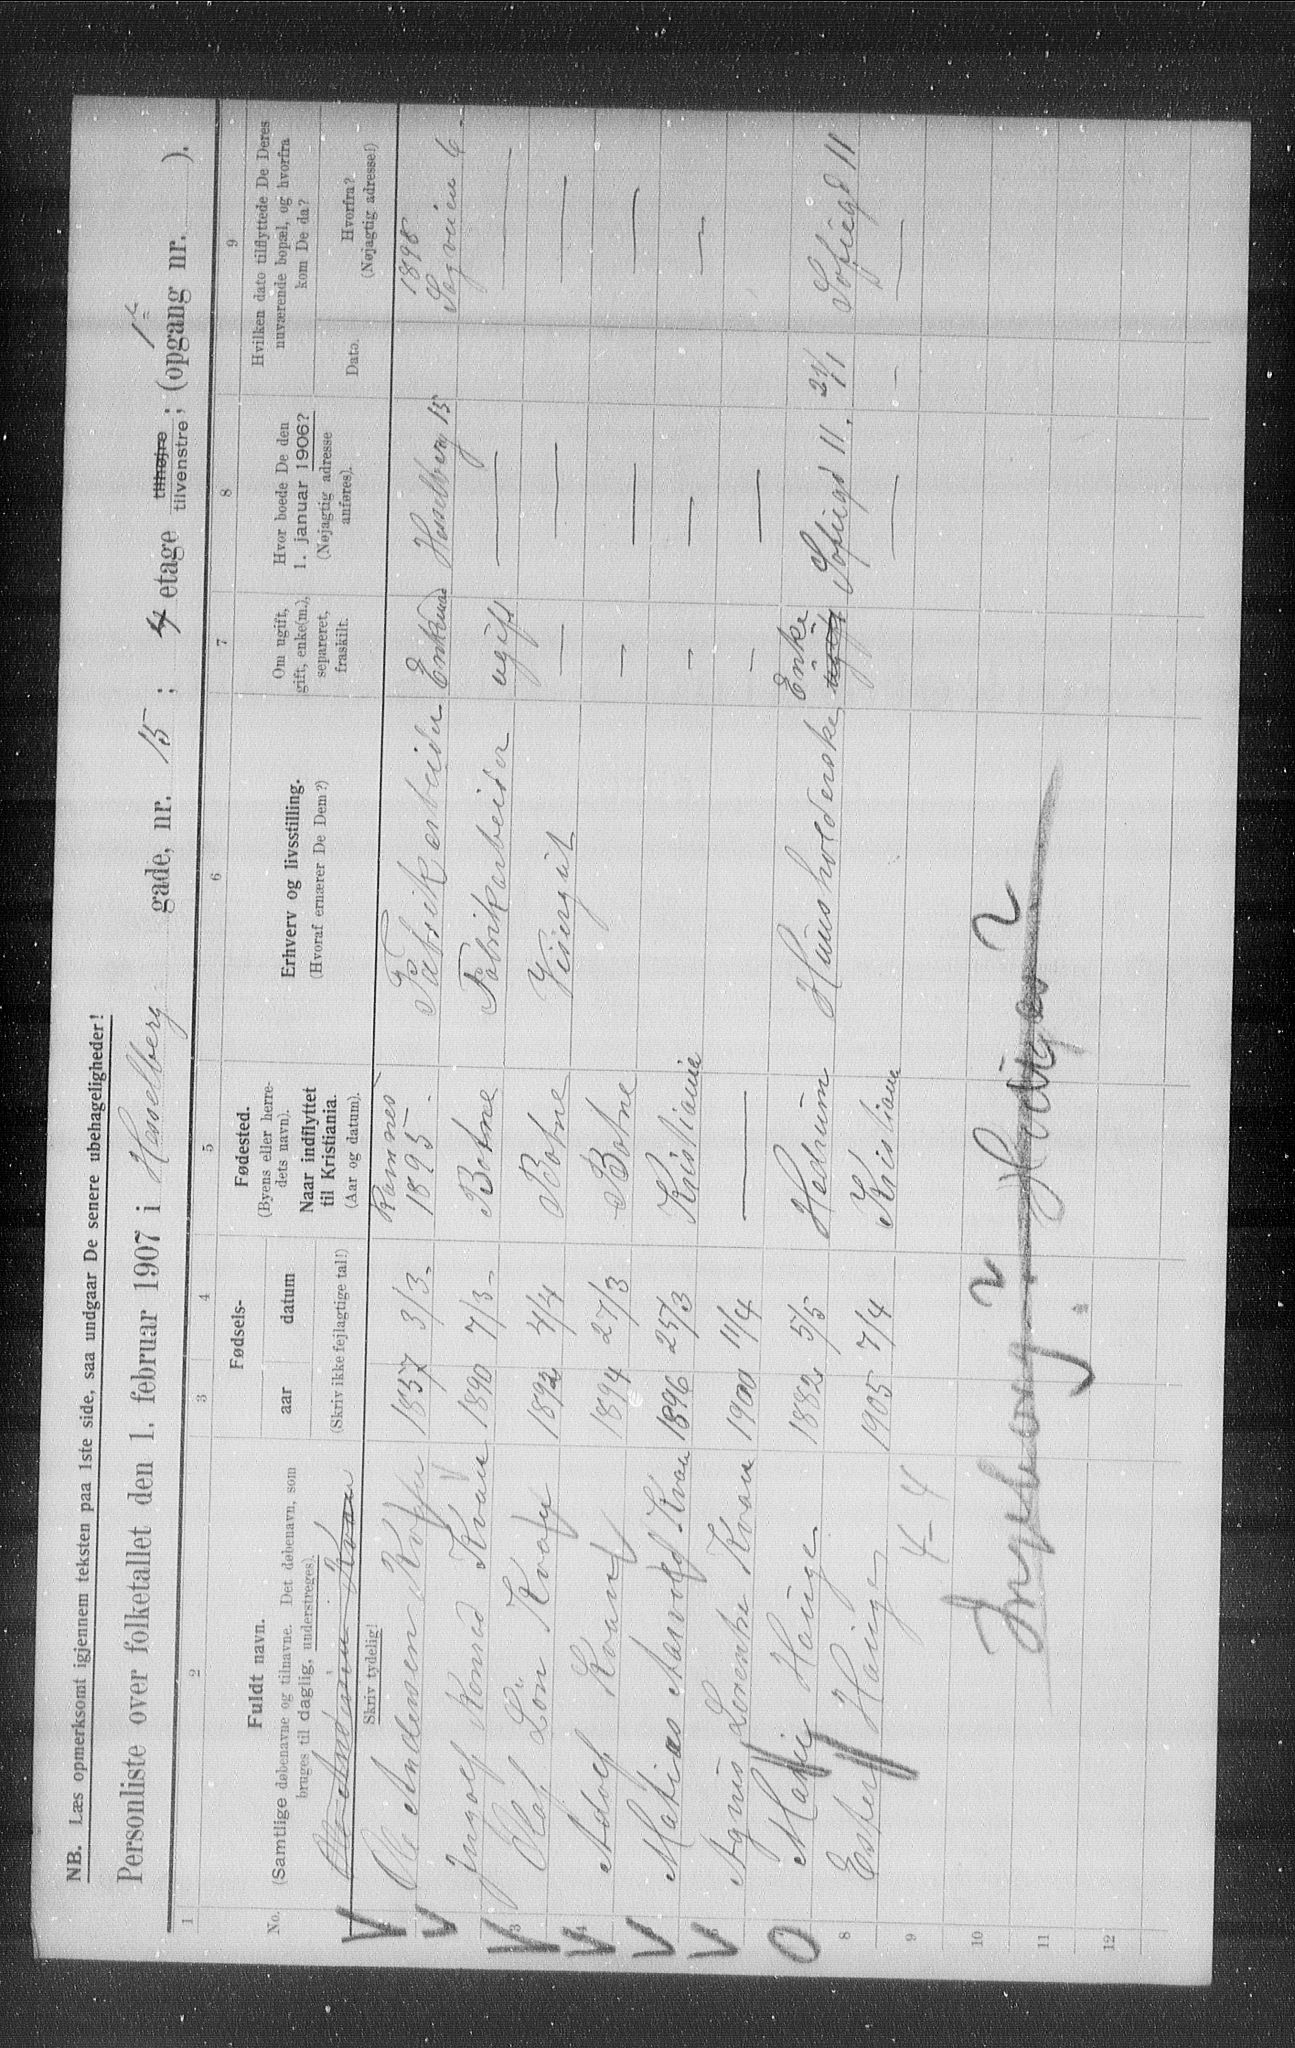 NB. Læs opmerksomt igjennem teksten paa 1ste side, saa undgaar De senere ubehageligheder!
Personliste over folketallet den 1. februar 1907 i Hesselberg gade, nr. 15 ; 4 etage tilhøjre tilvenstre ; (opgang nr. ).
1 2 3 4 5 6 7 8 9
No.
Fuldt navn.
(Samtlige døbenavne og tilnavne. Det døbenavn, som
bruges til daglig, understreges).
Skriv tydelig!
Fødsels-
aar datum
(Skriv ikke fejlagtige tal!)
Fødested.
(Byens eller herre-
dets navn).
Naar indflyttet
til Kristiania.
(Aar og datum).
Erhverv og livsstilling.
(Hvoraf ernærer De Dem?)
Om ugift,
gift, enke(m.),
separeret,
fraskilt.
Hvor boede De den
1. januar 1906?
(Nøjagtig adresse
anføres).
Hvilken dato tilflyttede De Deres
nuværende bopæl, og hvorfra
kom De da?
Dato.
Hvorfra?
(Nøjagtig adresse!)
Ole Andersen Kvan
Ole Andersen 1857 3/3 Ramnes 1895. Fabrikarbeider Enkemand Hesselberg 15 1898 Sagveien 6.
Ingolf Konrad Kvan 1890 7/3 Botne Fabrikarbeider ugift — —
3 Olaf 1892 4/4 Botne Visergut — — —
4 Adolf Kvan 1894 27/3 Botne — — —
Matias Aarvold Kvan 1896 25/3 Kristiania — — —
Agnus Lorentse Kvan 1900 11/4 — — —
Marie Hauge 1882 5/5 Huusholderske Enke ugift Sofiegd 11. 21/1 Sofiegd 11
8 Ester Hauge 1905 7/4 Kristiania — — —
9 4 – 4
10
11
12